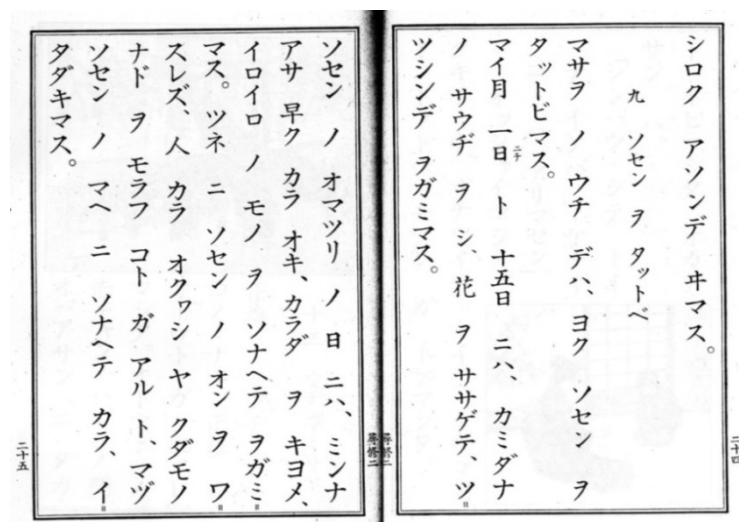 シロク アソンデ ヰマス。
九 ソセン ヲ タットベ
マサヲ ノ ウチ デハ、ヨク ソセン ヲ
タットビマス。
マイ月 一日 ト 十五日 ニハ、カミダナ
ノ サウヂ ヲ シ、花 ヲ ササゲテ、ツ
ツシンデ ヲガミマス。
二十四
尋修二
ソセン ノ オマツリ ノ 日 ニハ、ミンナ
アサ 早ク カラ オキ、カラダ ヲ キヨメ、
イロイロ ノ モノ ヲ ソナヘテ ヲガミ
マス。ツネ ニ ソセン ノ オン ヲ ワ
スレズ、人 カラ オクヮシ ヤ クダモノ
ナド ヲ モラフ コト ガ アルト、マヅ
ソセン ノ マヘ ニ ソナヘテ カラ、イ
タダキマス。
尋修二
二十五